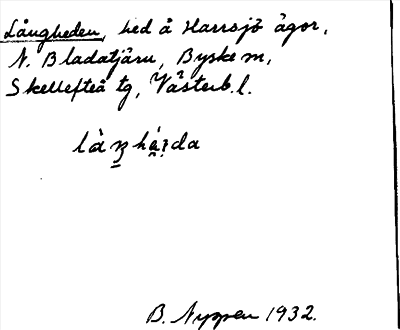 Långheden, hed å Harrsjö ägor,
N. Bladatjärn, Byske sn,
Skellefteå tg, Västerb. l.
B. Nyppen 1932.